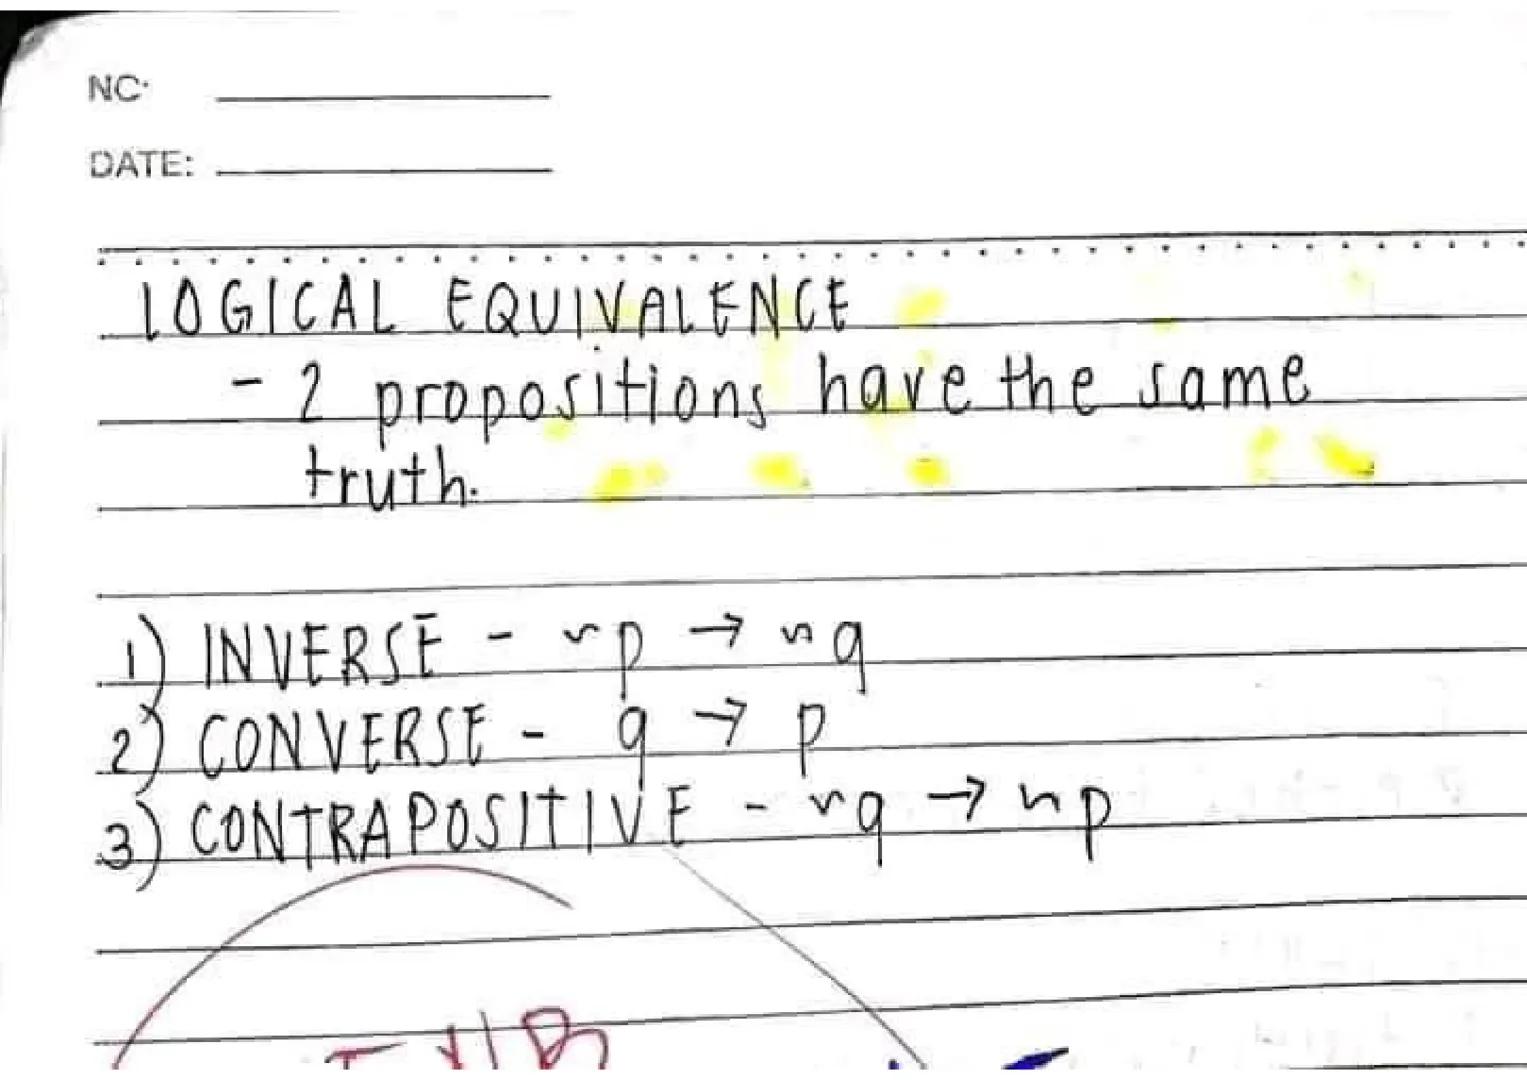 NO.
DATE:
LOGICAL EQUIVALENCE
- 2 propositions have the same
truth.
1) INVERSE - ~p → ~q
2) CONVERSE - q → p
3) CONTRAPOSITIVE - ~q → ~p